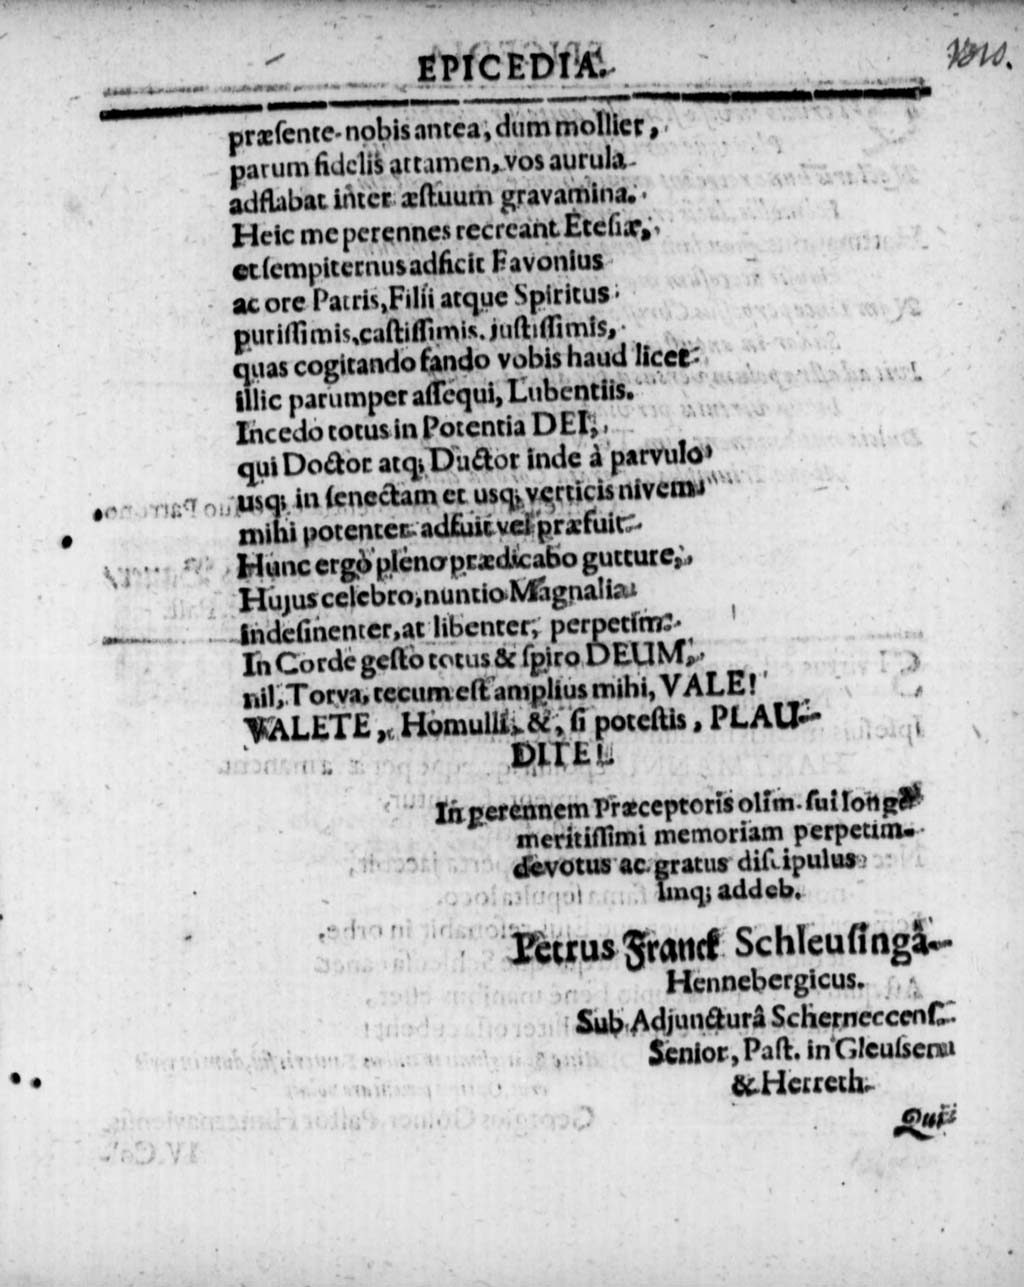 EPICEDIA.
præſente nobis antea, dum mollior,
parum fidelis attamen, vos aurula
adflabat inter æſtuum gravamina.
Heic me perennes recreant Eteſiæ,
et ſempiternus adficit Favonius
ac ore Patris, Filii atque Spiritus
puriſſimis, caſtiſſimis, juſtiſſimis,
quas cogitando fando vobis haud licet
illic parumper aſſequi, Lubentiis.
Incedo totus in Potentia DEI,
qui Doctor atq; Ductor inde à parvulo
usq; in ſenectam et usq; verticis nivem
mihi potenter adfuit vel præfuit.
Hunc ergò pleno prædicabo gutture,
Hujus celebro, nuntio Magnalia
indeſinenter, at libenter, perpetim.
In Corde geſto totus & ſpiro DEUM,
nil, Torva, tecum eſt amplius mihi, VALE!
VALETE, Homulli, &, ſi poteſtis, PLAU-
DITE!
In perennem Præceptoris olim ſui longè
meritiſſimi memoriam perpetim
devotus ac gratus diſcipulus
linq; addeb.
Petrus Franck Schleuſingâ-
Hennebergicus.
Sub Adjuncturâ Scherneccenſ.
Senior, Paſt. in Gleuſſenu
& Herreth.